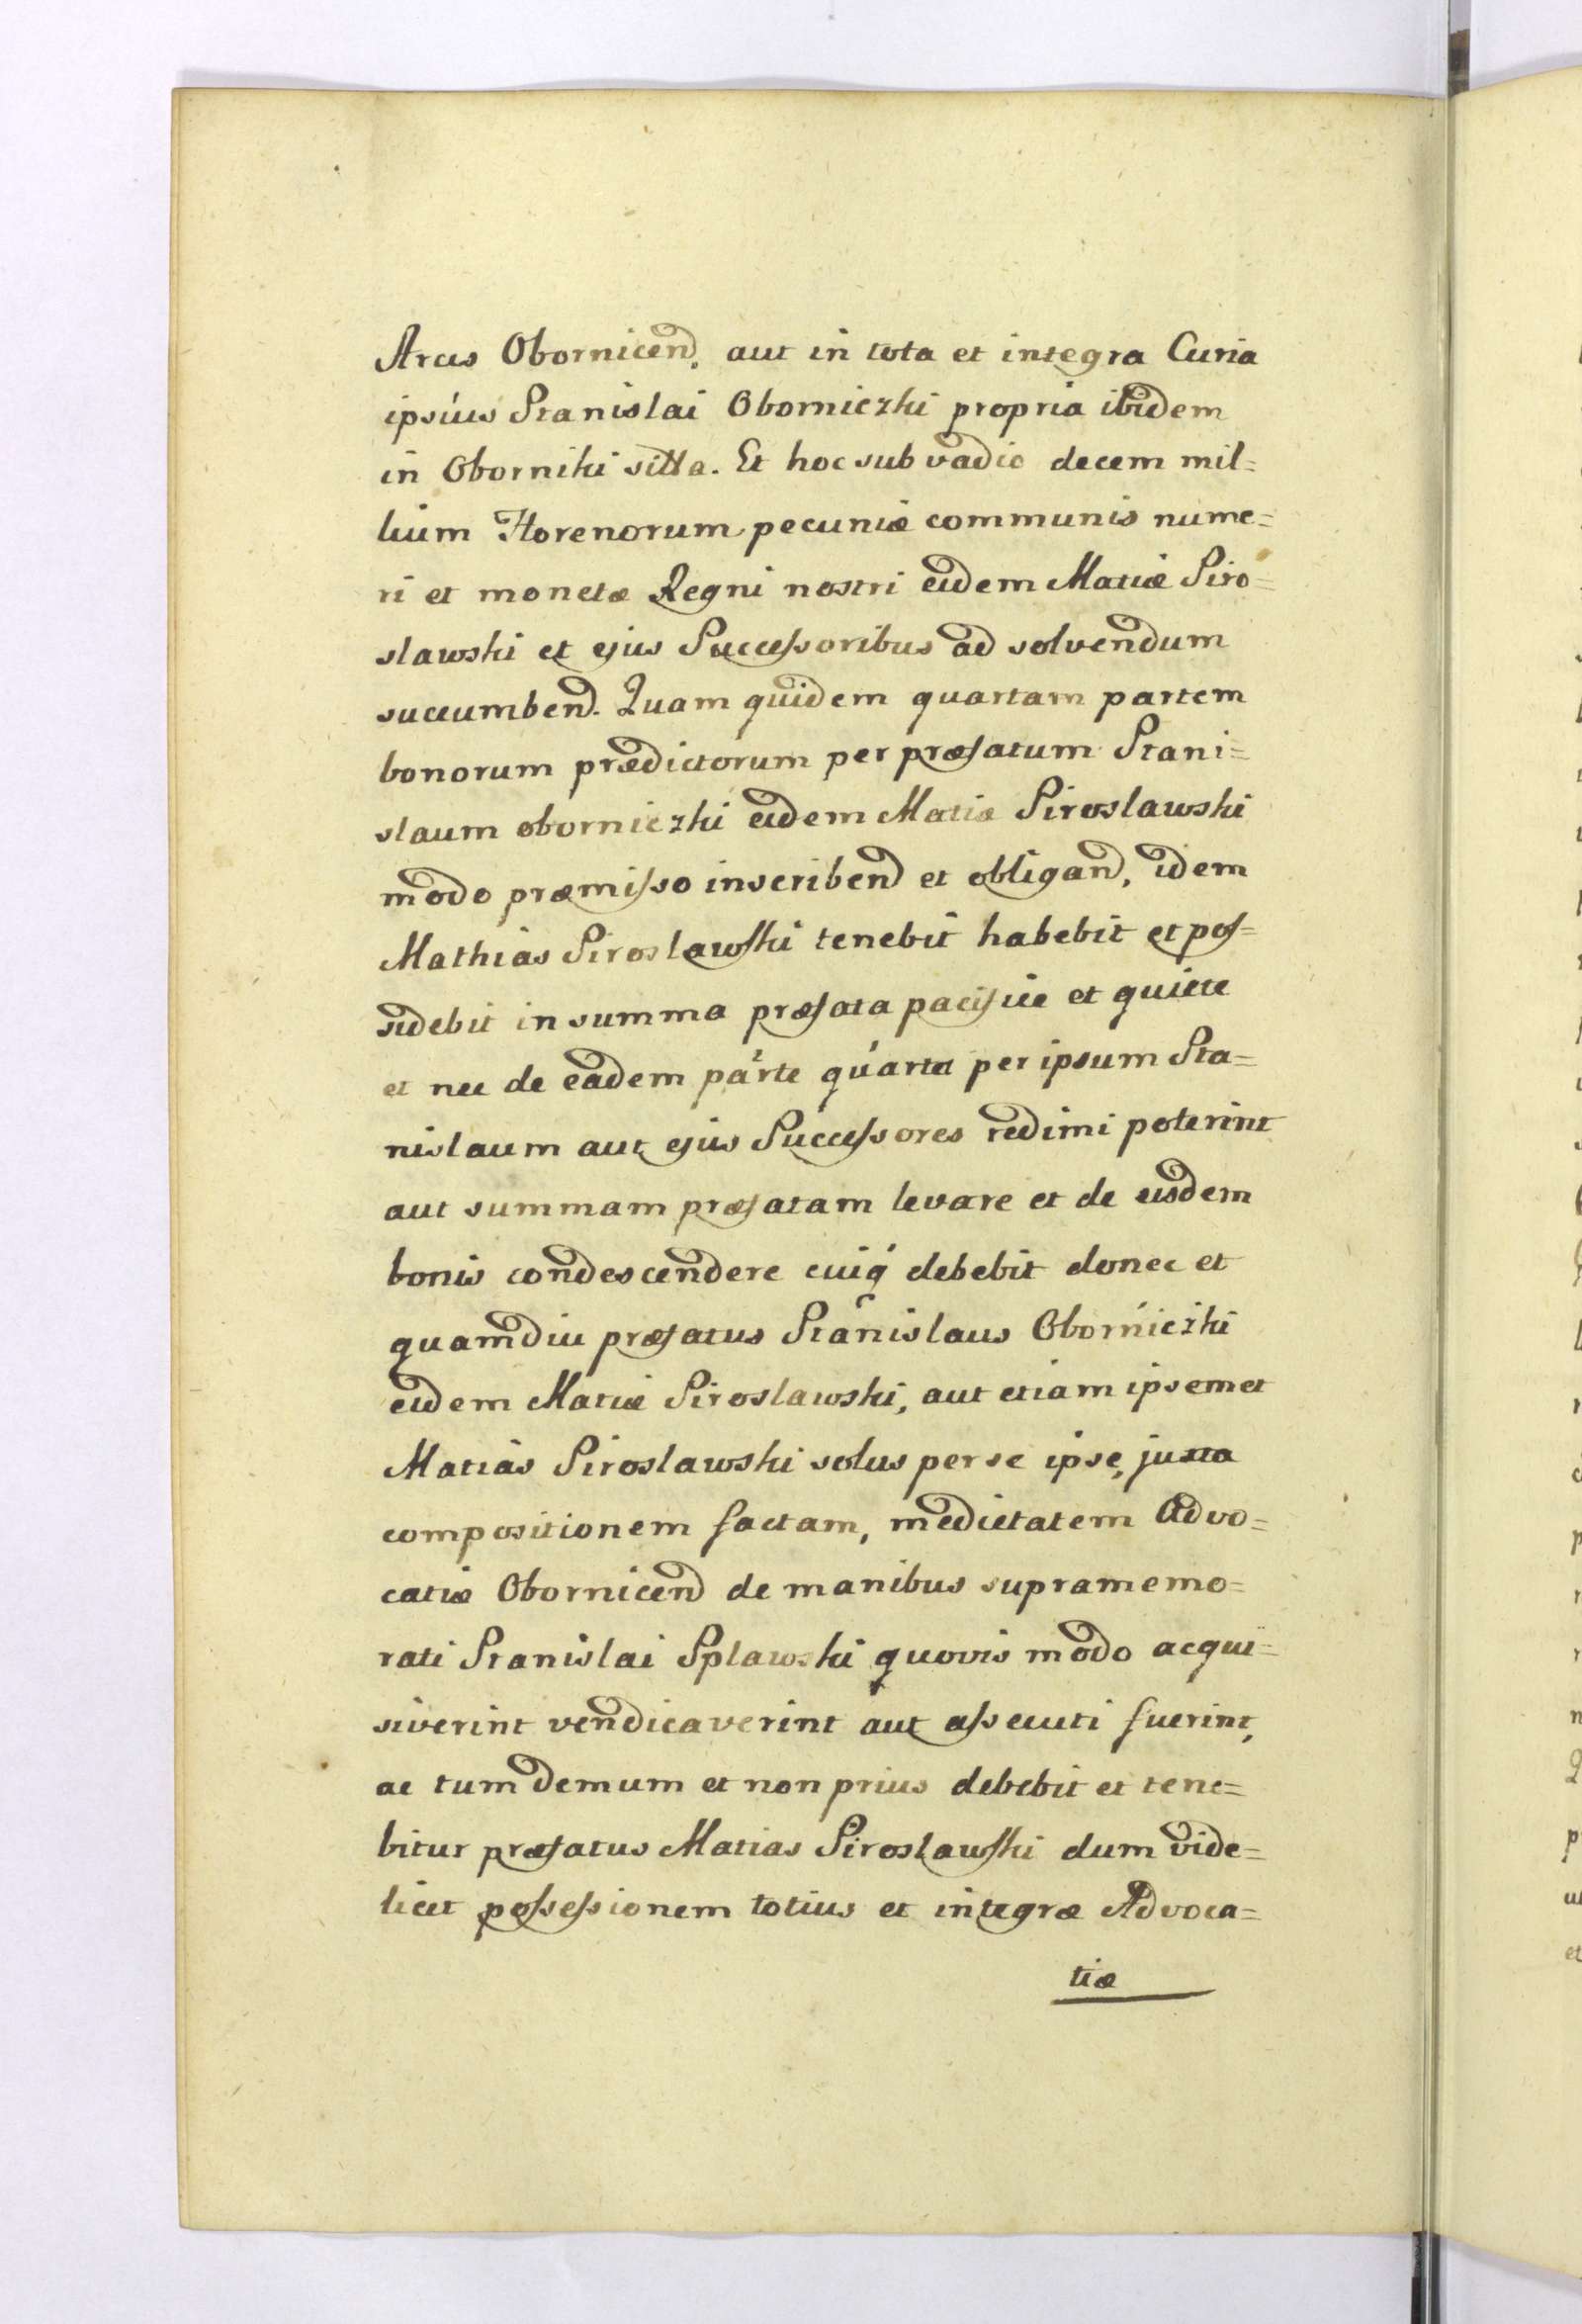 Arcis Obornicen̄. aut in tota et integra Curia
ipsius Stanislai Oborniczki propria ibidem
in Oborniki sitta. Et hoc sub vadio decem mil=
lium Florenorum pecuniæ communis nume=
ri et monetæ Regni nostri eidem Matiæ Siro=
slawski et ejus Successoribus ad solvendum
succumbend. Quam quidem quartam partem
bonorum prædictorum per præfatum Stani=
slaum oborniczki eidem Matiæ Siroslawski
modo præmisso inscribend et obligand, idem
Mathias Siroslawski tenebit habebit et pos=
sidebit in summa præfata pacifice et quiete
et nec de eadem parte quarta per ipsum Sta=
nislaum aut ejus Successores redimi poterint
aut summam præfatam levare et de eisdem
bonis condescendere cuiq́ debebit donec et
quamdiu præfatus Stanislaus Oborniczki
eidem Matiæ Siroslawski, aut etiam ipsemet
Matias Siroslawski solus per se ipse, juxta
compositionem factam, medietatem Advo=
catiæ Obornicend de manibus supramemo=
rati Stanislai Splawski quovis modo acqui=
siverint vendicaverint aut assecuti fuerint,
ac tum demum et non prius debebit et tene=
bitur præfatus Matias Siroslawski dum vide=
licet possessionem totius et integræ Advoca=
tiæ